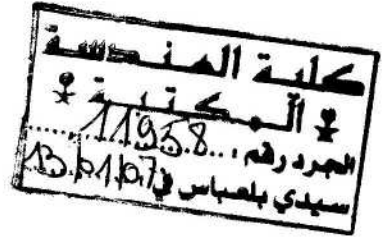 كلية الهندسة
المكتبة
الجرد رقم : 11958
سيدي بلعباس في 13.01.07